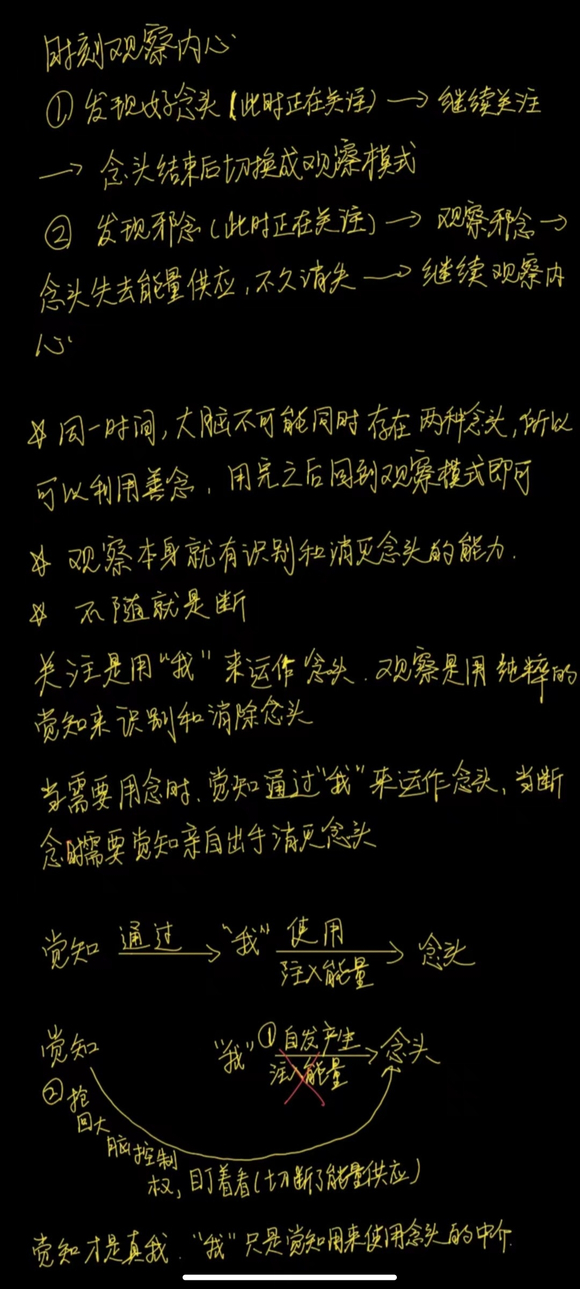 时刻观察内心
① 发现好念头(此时正在关注) → 继续关注
→ 念头结束后切换成观察模式
② 发现邪念(此时正在关注) → 观察邪念 →
念头失去能量供应,不久消失 → 继续观察内
心
* 同一时间,大脑不可能同时存在两种念头,所以
可以利用善念,用完之后回到观察模式即可
* 观察本身就有识别和消灭念头的能力.
* 不随就是断
关注是用"我"来运作念头.观察是用纯粹的
觉知来识别和消除念头
当需要用念时,觉知通过"我"来运作念头,当断
念时需要觉知亲自出手消灭念头
觉知 通过 → "我" 使用 → 念头
注入能量
觉知 "我" ①自发产生 → 念头
注入能量
② 抢
回大
脑控制
权,盯着看(切断了能量供应)
觉知才是真我."我"只是觉知用来使用念头的中介.